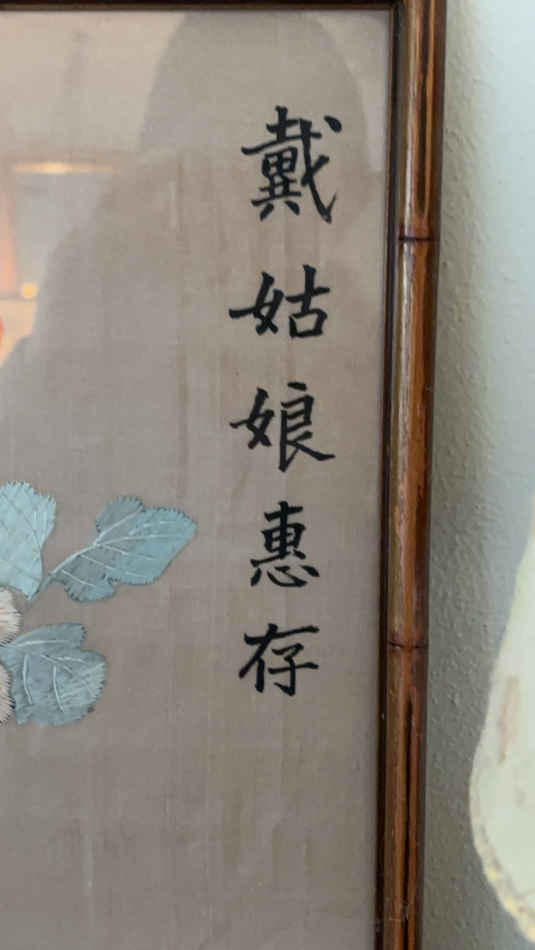 戴姑娘惠存